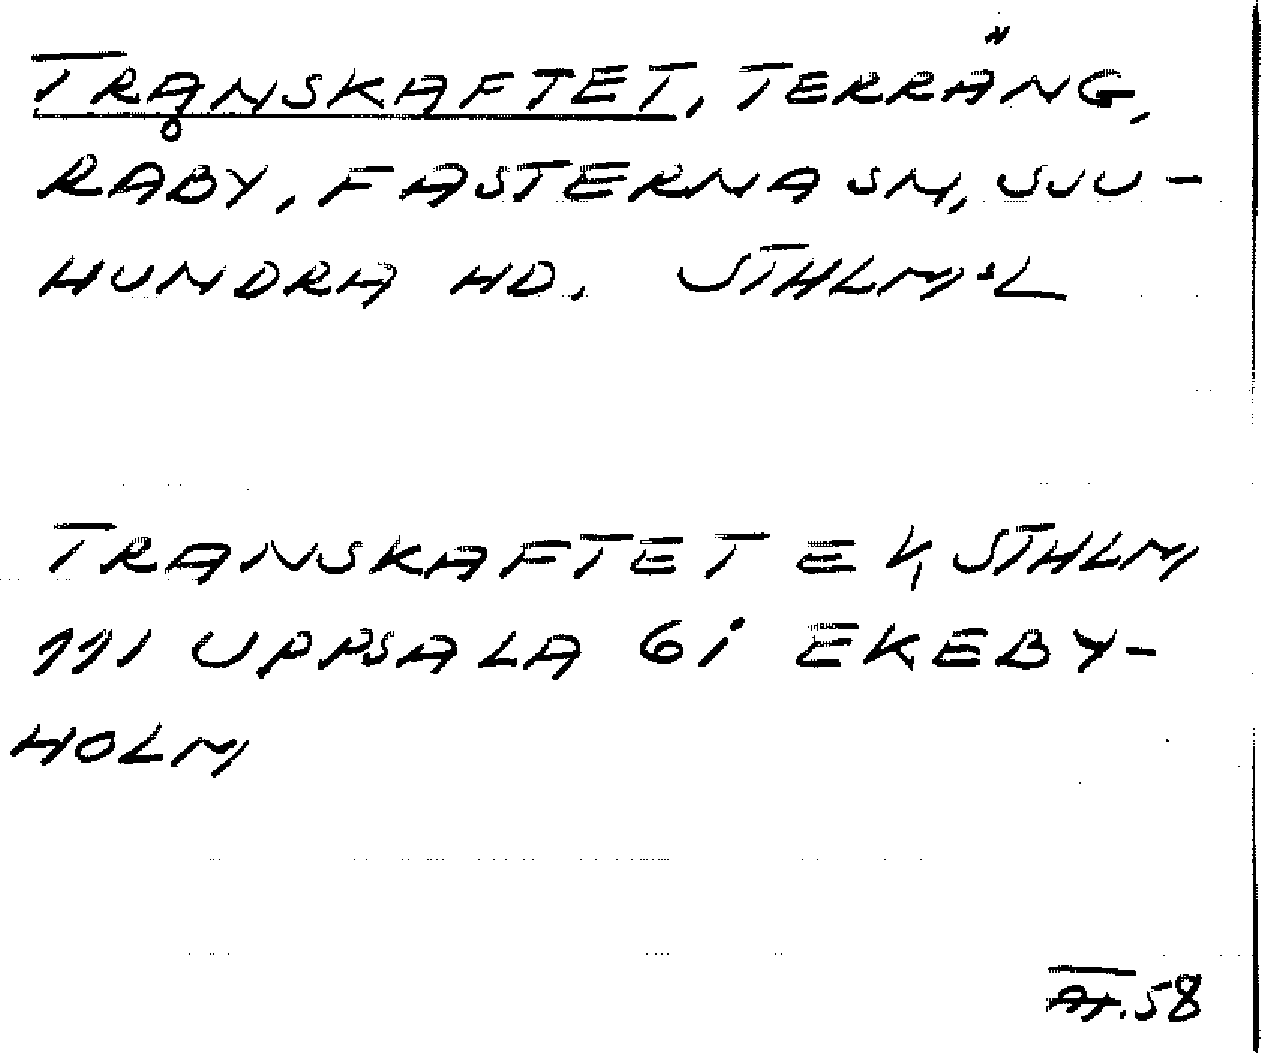 TRANSKAFTET, TERRÄNG,
RÅBY, FASTERNA SN, SJU-
HUNDRA HD. STHLM:S L
TRANSKAFTET EK, STHLM
111 UPPSALA 6i EKEBY-
HOLM
58